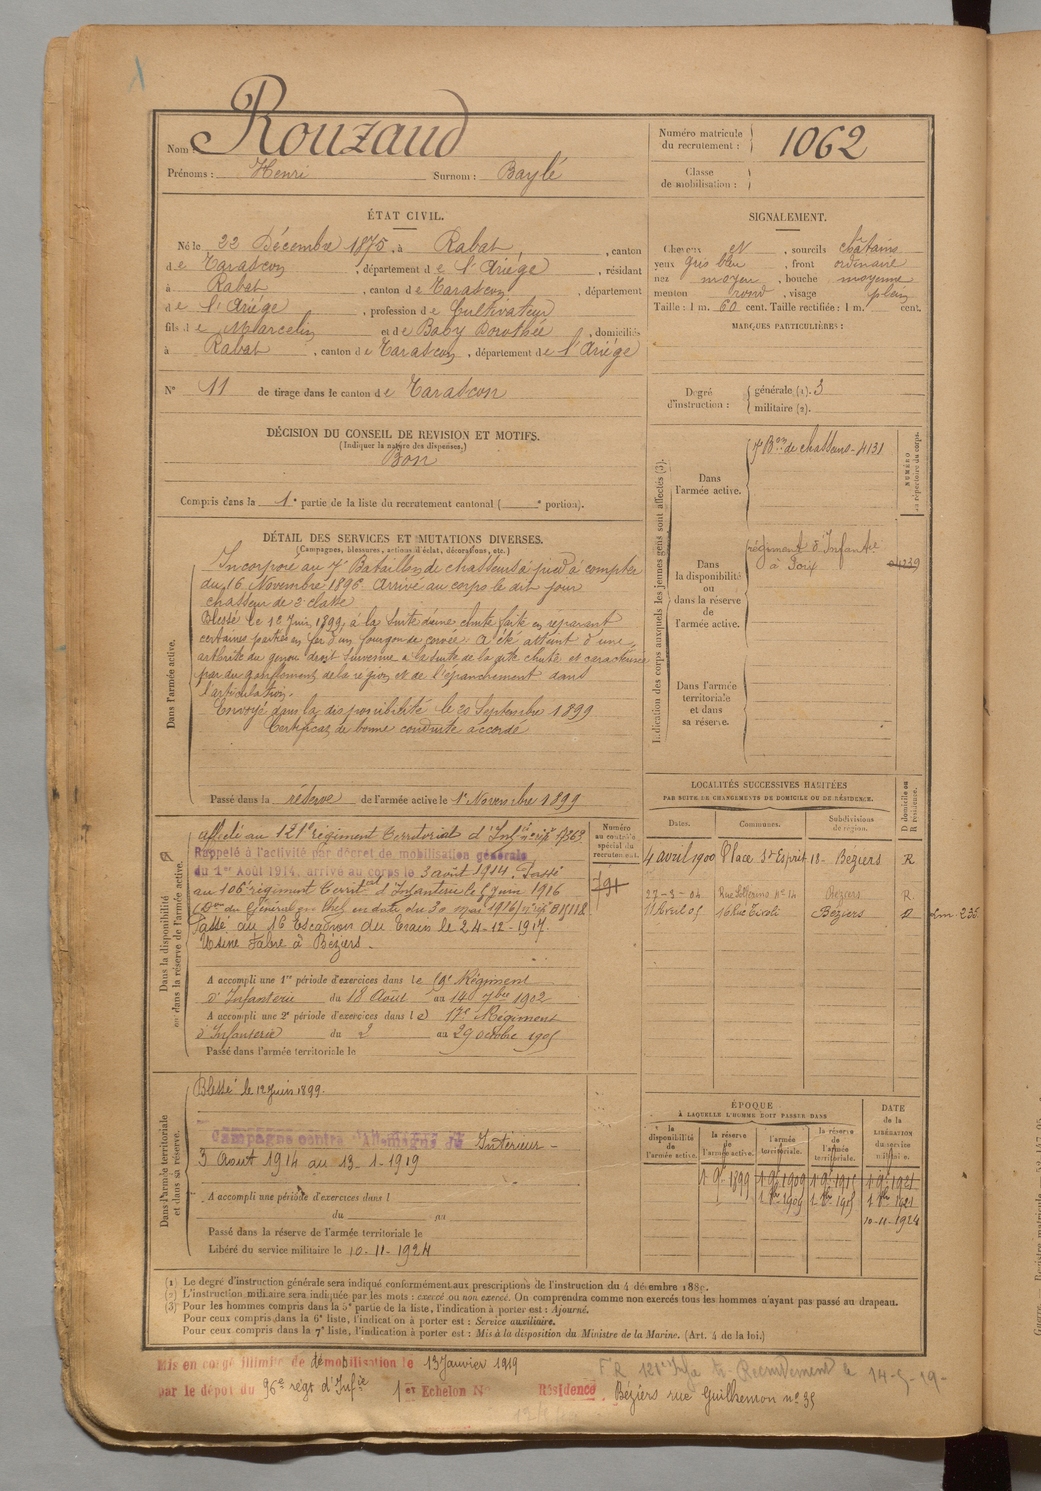 Nom : Rouzaud
Prénoms : Henri Surnom : Baylé
Numéro matricule du recrutement : 1062
Classe de mobilisation :
ÉTAT CIVIL.
Né le 22 Décembre 1875, à Rabat, canton
de Tarascon, département de l'Ariége, résidant
à Rabat, canton de Tarascon, département
de l'Ariége, profession de Cultivateur
fils de Marcelin et de Baby Dorothée, domiciliés
à Rabat, canton de Tarascon, département de l'Ariége
N° 11 de tirage dans le canton de Tarascon
SIGNALEMENT.
Cheveux et, sourcils châtains
yeux gris bleu, front ordinaire
nez moyen, bouche moyenne
menton rond, visage plein
Taille : 1 m. 60 cent. Taille rectifiée : 1 m. cent.
MARQUES PARTICULIÈRES :
Degré d'instruction : générale (1). 3
militaire (2).
DÉCISION DU CONSEIL DE REVISION ET MOTIFS.
(Indiquer la nature des dispenses.)
Bon
Compris dans la 1e partie de la liste du recrutement cantonal ( e portion).
DÉTAIL DES SERVICES ET MUTATIONS DIVERSES.
(Campagnes, blessures, actions d'éclat, décorations, etc.)
Dans l'armée active.
Incorporé au 7e Bataillon de chasseurs à pied à compter
du 16 Novembre 1896. Arrivé au corps le dit jour
chasseur de 2e classe
Blessé le 12 Juin 1899, à la suite d'une chute faite en réparant
certaines parties en fer d'un fourgon de corvée. A été atteint d'une
arthrite du genou droit survenue à la suite de la dite chute et caractérisée
par du gonflement de la région et de l'épanchement dans
l'articulation.
Envoyé dans la disponibilité le 20 Septembre 1899
Certificat de bonne conduite accordé
Passé dans la réserve de l'armée active le 1er Novembre 1899
Indication des corps auxquels les jeunes gens sont affectés (3).
NUMÉRO au répertoire du corps.
Dans l'armée active.
7e Bon de chasseurs - 4131
Dans la disponibilité ou dans la réserve de l'armée active.
régiment d'Infantie
à Foix
Dans l'armée territoriale et dans sa réserve.
LOCALITÉS SUCCESSIVES HABITÉES
PAR SUITE DE CHANGEMENTS DE DOMICILE OU DE RÉSIDENCE.
Dates. Communes. Subdivisions de région. D domicile ou R résidence.
4 avril 1900 Place St Esprit 18 - Béziers R
27-3-04 Béziers R
11 Avril 05 16 Rue Tivoli Béziers
Dans la disponibilité ou dans la réserve de l'armée active.
Numéro au contrôle spécial du recrutement.
791
affecté au 121e régiment Territorial d'Infie
Rappelé à l'activité par décret de mobilisation générale
du 1er Août 1914, arrivé au corps le 3 août 1914. Passé
au 106e régiment Territal d'Infanterie le 5 juin 1916
(Don du Général en chef en date du 30 mai 1916)
Passé au 16 Escadron du Train le 24-12-1917.
Usine Fabre à Béziers.
A accompli une 1re période d'exercices dans le Régiment
d'Infanterie du 18 Août au 14 7bre 1902
A accompli une 2e période d'exercices dans le 17e Régiment
d'Infanterie du 2 au 29 octobre 1905
Passé dans l'armée territoriale le
Dans l'armée territoriale et dans sa réserve.
Blessé le 12 Juin 1899.
Campagne contre l'Allemagne du Intérieur -
3 Août 1914 au 13-1-1919
A accompli une période d'exercices dans l
du au
Passé dans la réserve de l'armée territoriale le
Libéré du service militaire le 10-11-1924
ÉPOQUE
A LAQUELLE L'HOMME DOIT PASSER DANS
la disponibilité de l'armée active. la réserve de l'armée active. l'armée territoriale. la réserve de l'armée territoriale. DATE de la LIBÉRATION du service militaire.
1 9e 1899 1 9e 1909 1 9e 1915 1 9e 1921
10-11-1924
(1) Le degré d'instruction générale sera indiqué conformément aux prescriptions de l'instruction du 4 décembre 1889.
(2) L'instruction militaire sera indiquée par les mots : exercé ou non exercé. On comprendra comme non exercés tous les hommes n'ayant pas passé au drapeau.
(3) Pour les hommes compris dans la 5e partie de la liste, l'indication à porter est : Ajourné.
Pour ceux compris dans la 6e liste, l'indication à porter est : Service auxiliaire.
Pour ceux compris dans la 7e liste, l'indication à porter est : Mis à la disposition du Ministre de la Marine. (Art. 4 de la loi.)
Mis en congé illimité de démobilisation le 13 Janvier 1919
par le dépôt du 96e régt d'Infie 1er Echelon N° Résidence Béziers rue Guilhemon n° 35